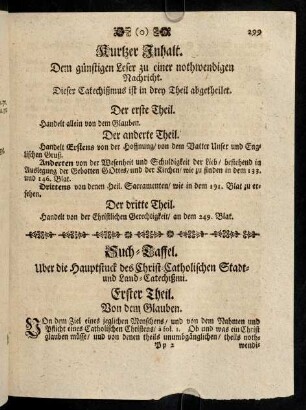 (0) 299
Kurtzer Inhalt.
Dem günstigen Leser zu einer nothwendigen
Nachricht.
Dieser Catechißmus ist in drey Theil abgetheilet.
Der erste Theil.
Handelt allein von dem Glauben.
Der anderte Theil.
Handelt Erstens von der Hoffnung/ von dem Vatter Unser und Eng-
lischen Gruß.
Anderten von der Wesenheit und Schuldigkeit der Lieb/ bestehend in
Auslegung der Gebotten GOttes/ und der Kirchen/ wie zu finden in dem 133.
und 146. Blat.
Drittens von denen Heil. Sacramenten/ wie in dem 191. Blat zu er-
sehen.
Der dritte Theil.
Handelt von der Christlichen Gerechtigkeit/ an dem 249. Blat.
Such-Taffel.
Uber die Hauptstuck des Christ-Catholischen Stadt-
und Land-Catechißmi.
Erster Theil.
Von dem Glauben.
VOn dem Ziel eines jeglichen Menschens/ und von dem Nahmen und
Pflicht eines Catholischen Christens/ à fol. 1. Ob und was ein Christ
glauben müsse/ und von denen theils unumbgänglichen/ theils noth-
Pp 2 wendi-